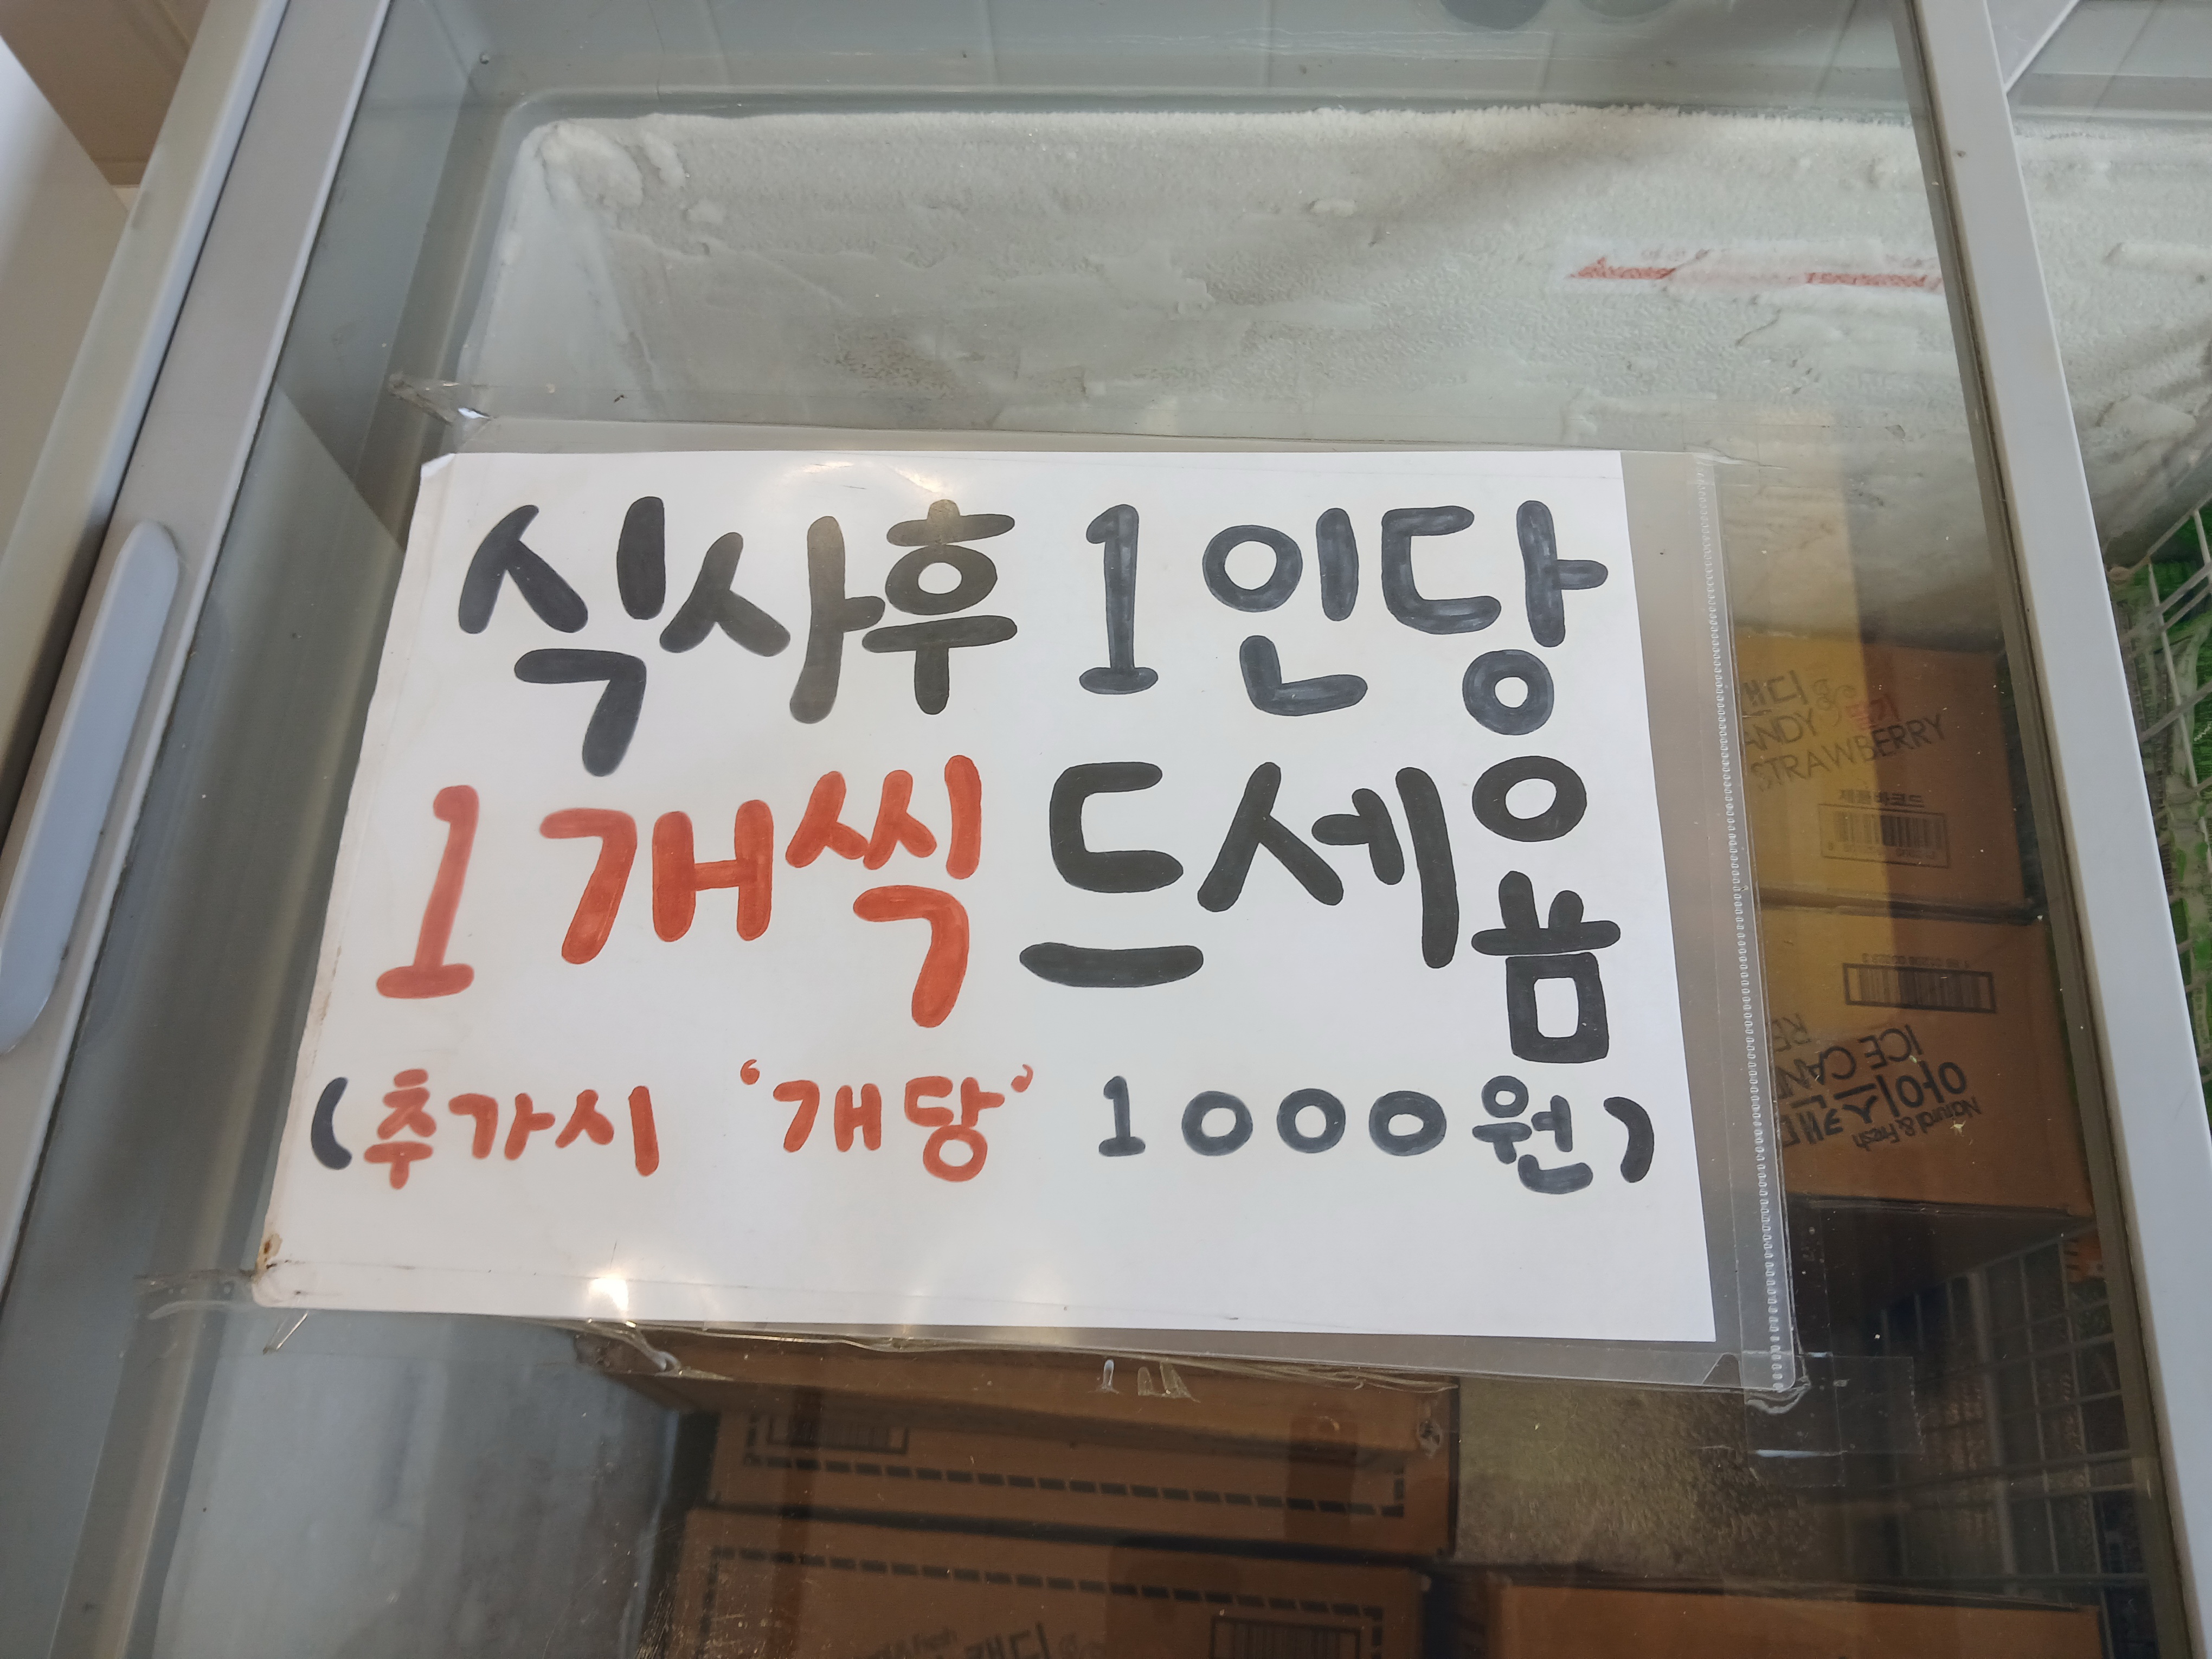 식사후 1인당
1개씩 드세용
(추가시 '개당' 1000원)
캔디
ANDY 딸기
STRAWBERRY
제품바코드
Natural & Fresh
아이스캔디
ICE CAND
RE
캔디